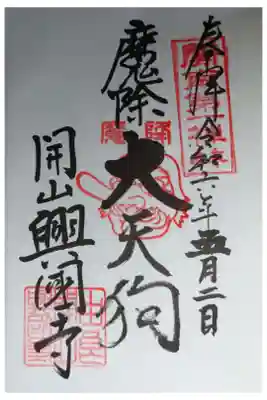 奉拝 令和六年五月二日
魔除
大天狗
開山興國寺